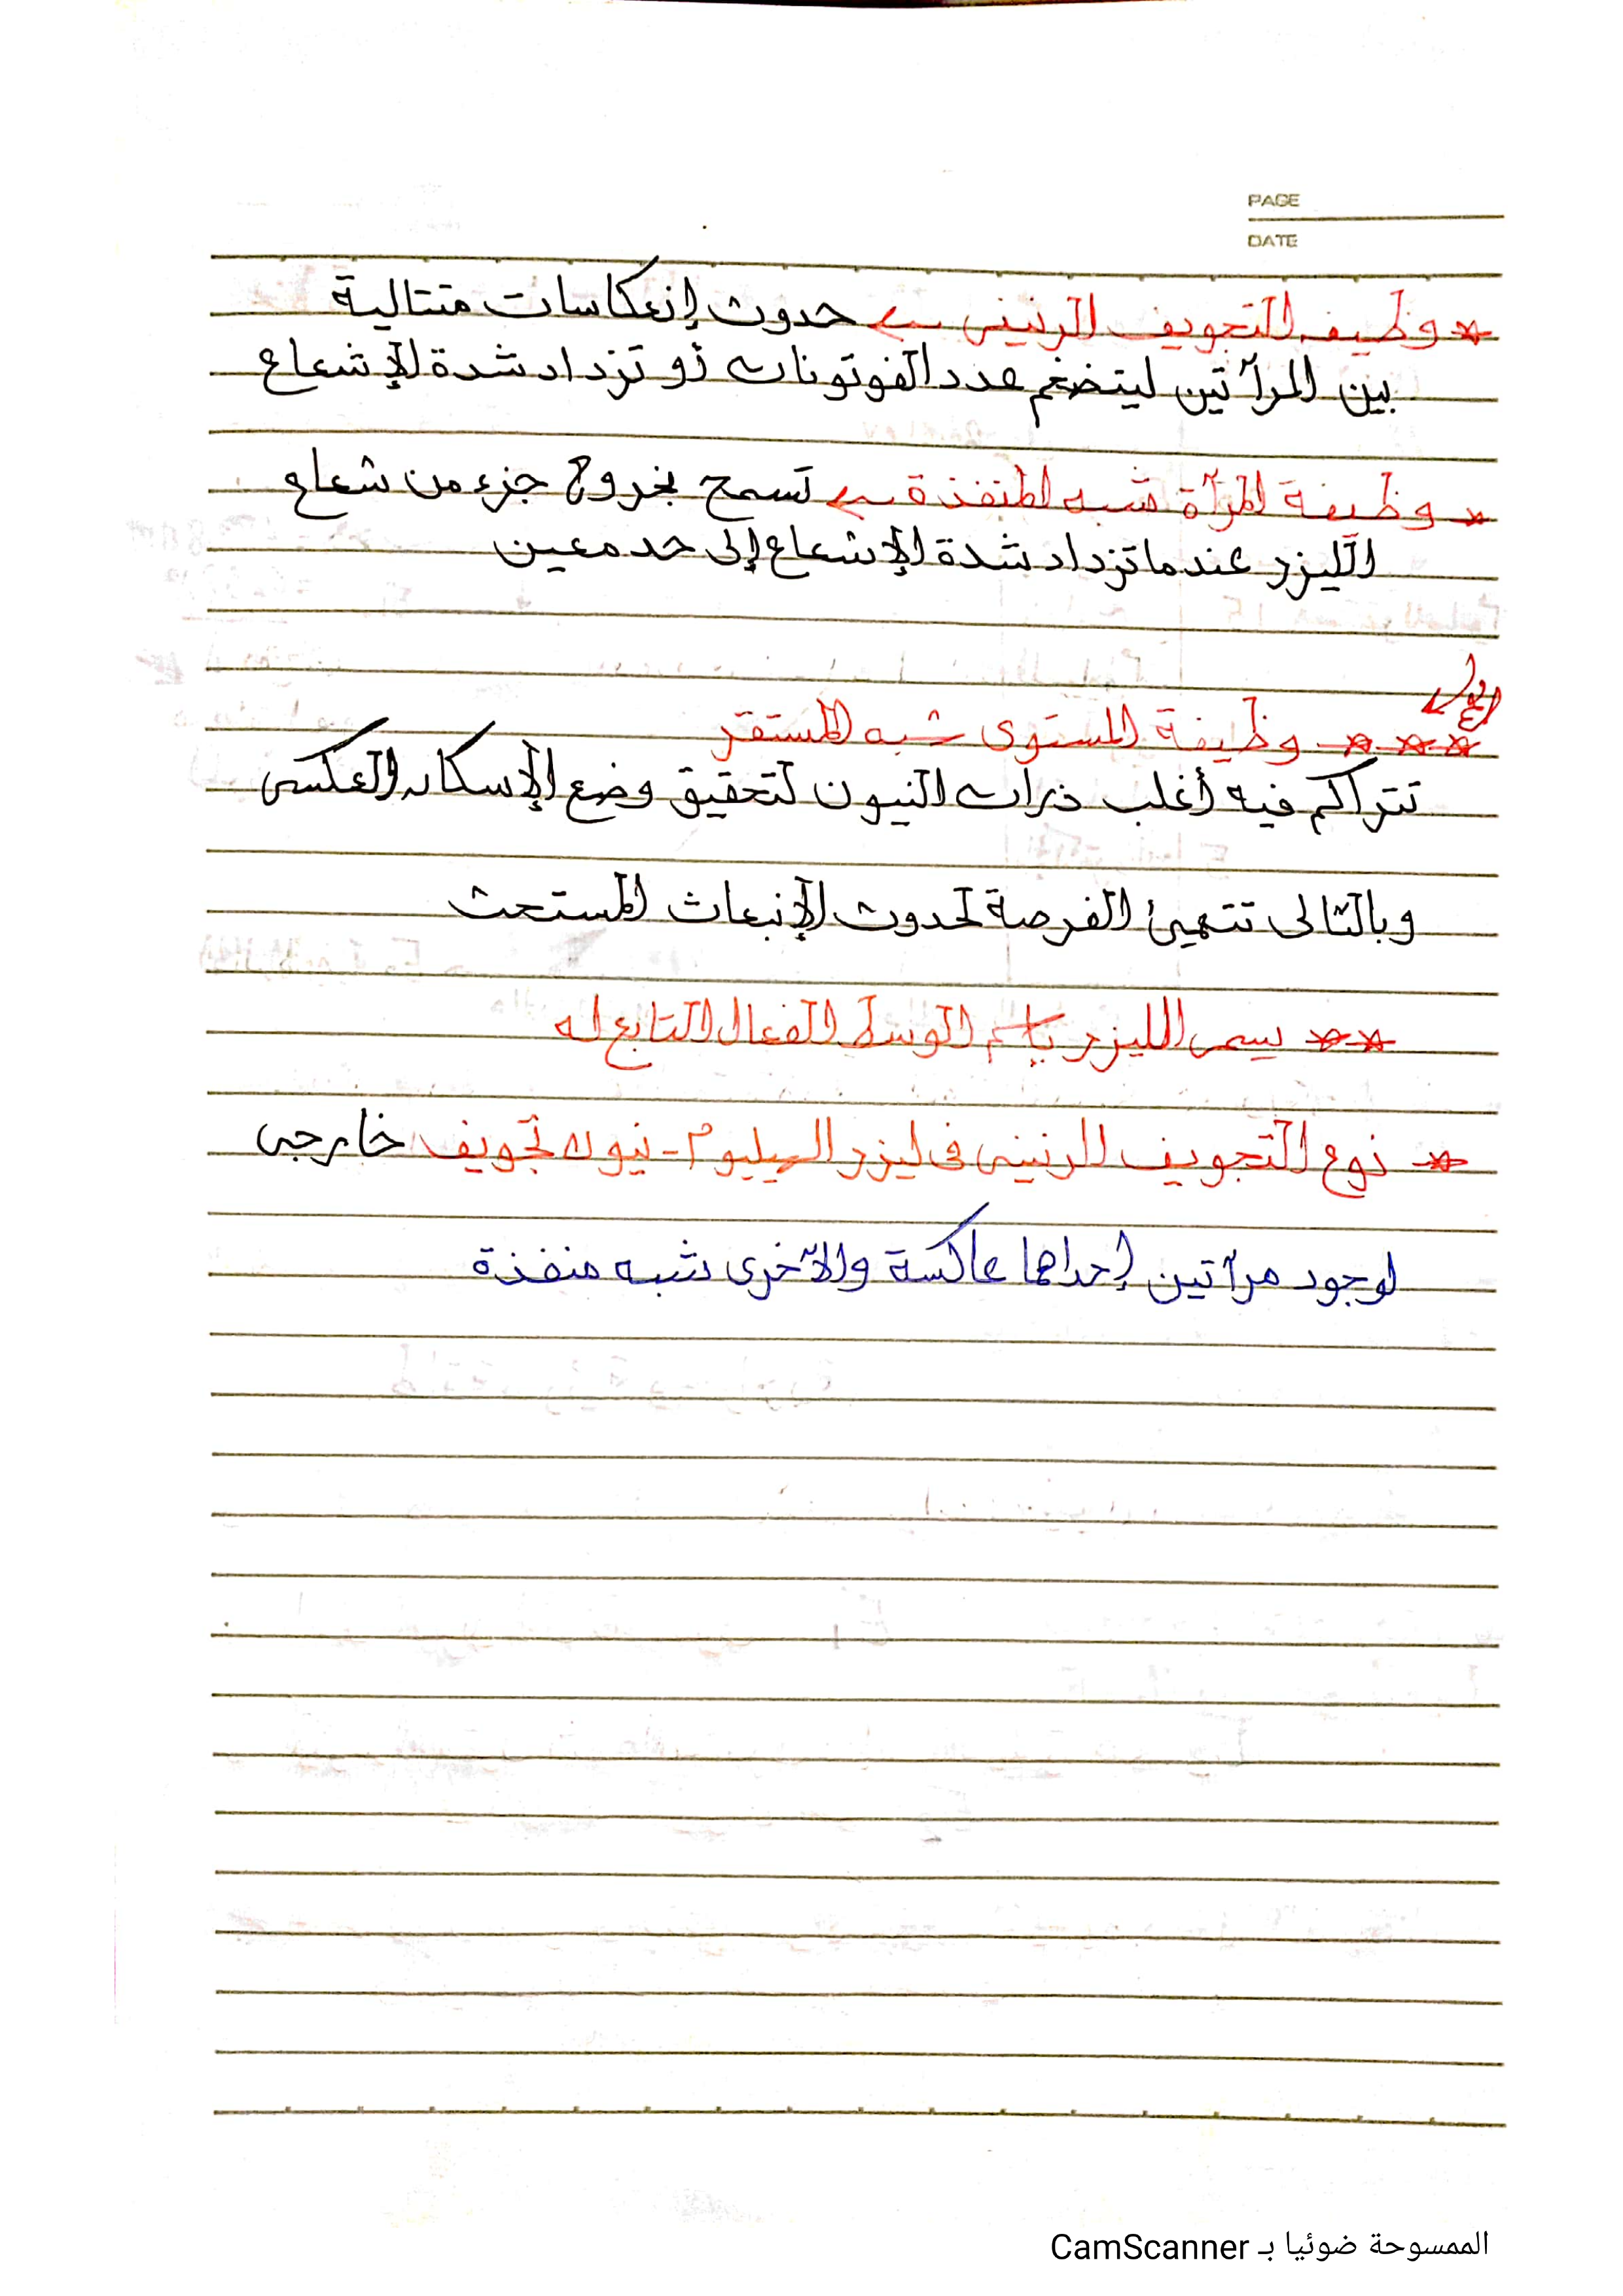 PAGE
DATE
* وظيفه التجويف الرنيني ← حدوث إنعكاسات متتالية
بين المرآتين ليتضخم عدد الفوتونات أو تزداد شدة الإشعاع
* وظيفة المرآة شبه المنفذة ← تسمح بخروج جزء من شعاع
الليزر عندما تزداد شدة الإشعاع إلى حد معين
*** وظيفة المستوى شبه المستقر
تتراكم فيه أغلب ذرات النيون لتحقيق وضع الإسكان العكسى
وبالتالى تتهيئ الفرصة لحدوث الإنبعاث المستحث
** يسمى الليزر بإسم الوسط الفعال التابع له
* نوع التجويف الرنينى فى ليزر الهيليوم - نيون تجويف خارجى
لوجود مرآتين إحداها عاكسة والآخرى شبه منفذة
الممسوحة ضوئيا بـ CamScanner